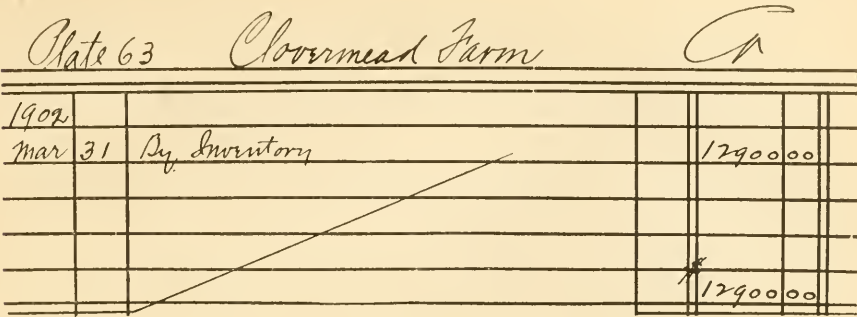 Plate 63 Clovermead Farm Cr
1902
Mar 31 By Inventory 12900 00
$ 12900 00